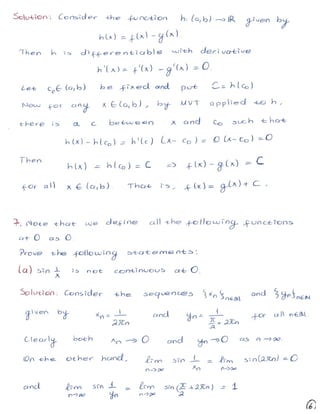 Solution: Consider the function h: (a,b) → ℝ given by
h(x) = f(x) - g(x).
Then h is differentiable with derivative
h'(x) = f'(x) - g'(x) = 0.
Let c₀ ∈ (a,b) be fixed and put C = h(c₀)
Now for any x ∈ (a,b), by MVT applied to h,
there is a c between x and c₀ such that
h(x) - h(c₀) = h'(c) (x - c₀) = 0 (x - c₀) = 0
Then h(x) = h(c₀) = C ⇒ f(x) - g(x) = C
for all x ∈ (a,b). That is, f(x) = g(x) + C.
7. Note that we define all the following functions
at 0 as 0
Prove the following statements:
(a) sin 1/x is not continuous at 0.
Solution: Consider the sequences {xₙ}ₙ∈ℕ and {yₙ}ₙ∈ℕ
given by xₙ = 1/(2πn) and yₙ = 1/(π/2 + 2πn) for all n∈ℕ.
Clearly both xₙ → 0 and yₙ → 0 as n → ∞.
On the other hand, lim n→∞ sin 1/xₙ = lim n→∞ sin(2πn) = 0
and lim n→∞ sin 1/yₙ = lim n→∞ sin(π/2 + 2πn) = 1
6